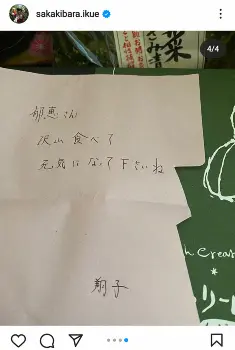 sakakibara.ikue
4/4
米
郁恵さん
沢山食べて
元気になって下さいね
翔子
Crea
リー